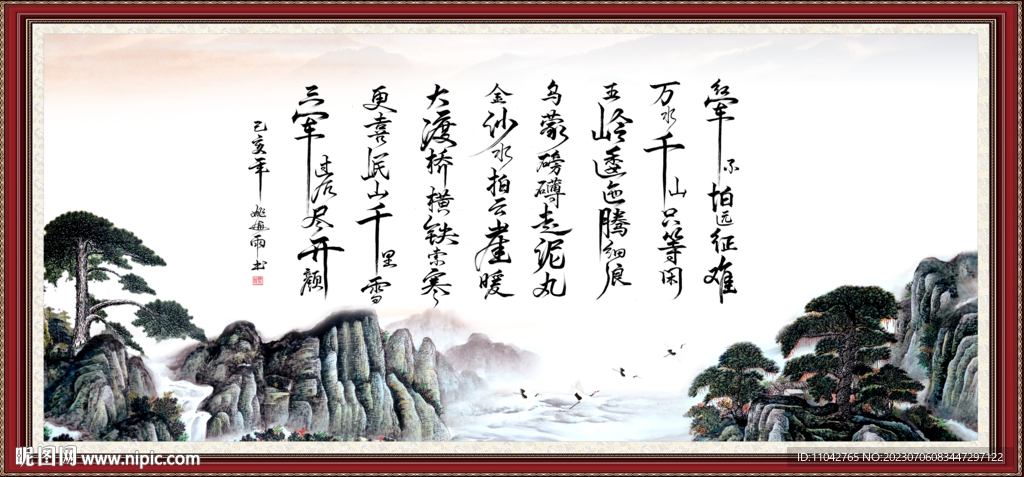 红军不怕远征难
万水千山只等闲
五岭逶迤腾细浪
乌蒙磅礴走泥丸
金沙水拍云崖暖
大渡桥横铁索寒
更喜岷山千里雪
三军过后尽开颜
己亥年
雨书
昵图网 www.nipic.com
ID:11042765 NO:20230706083447297122